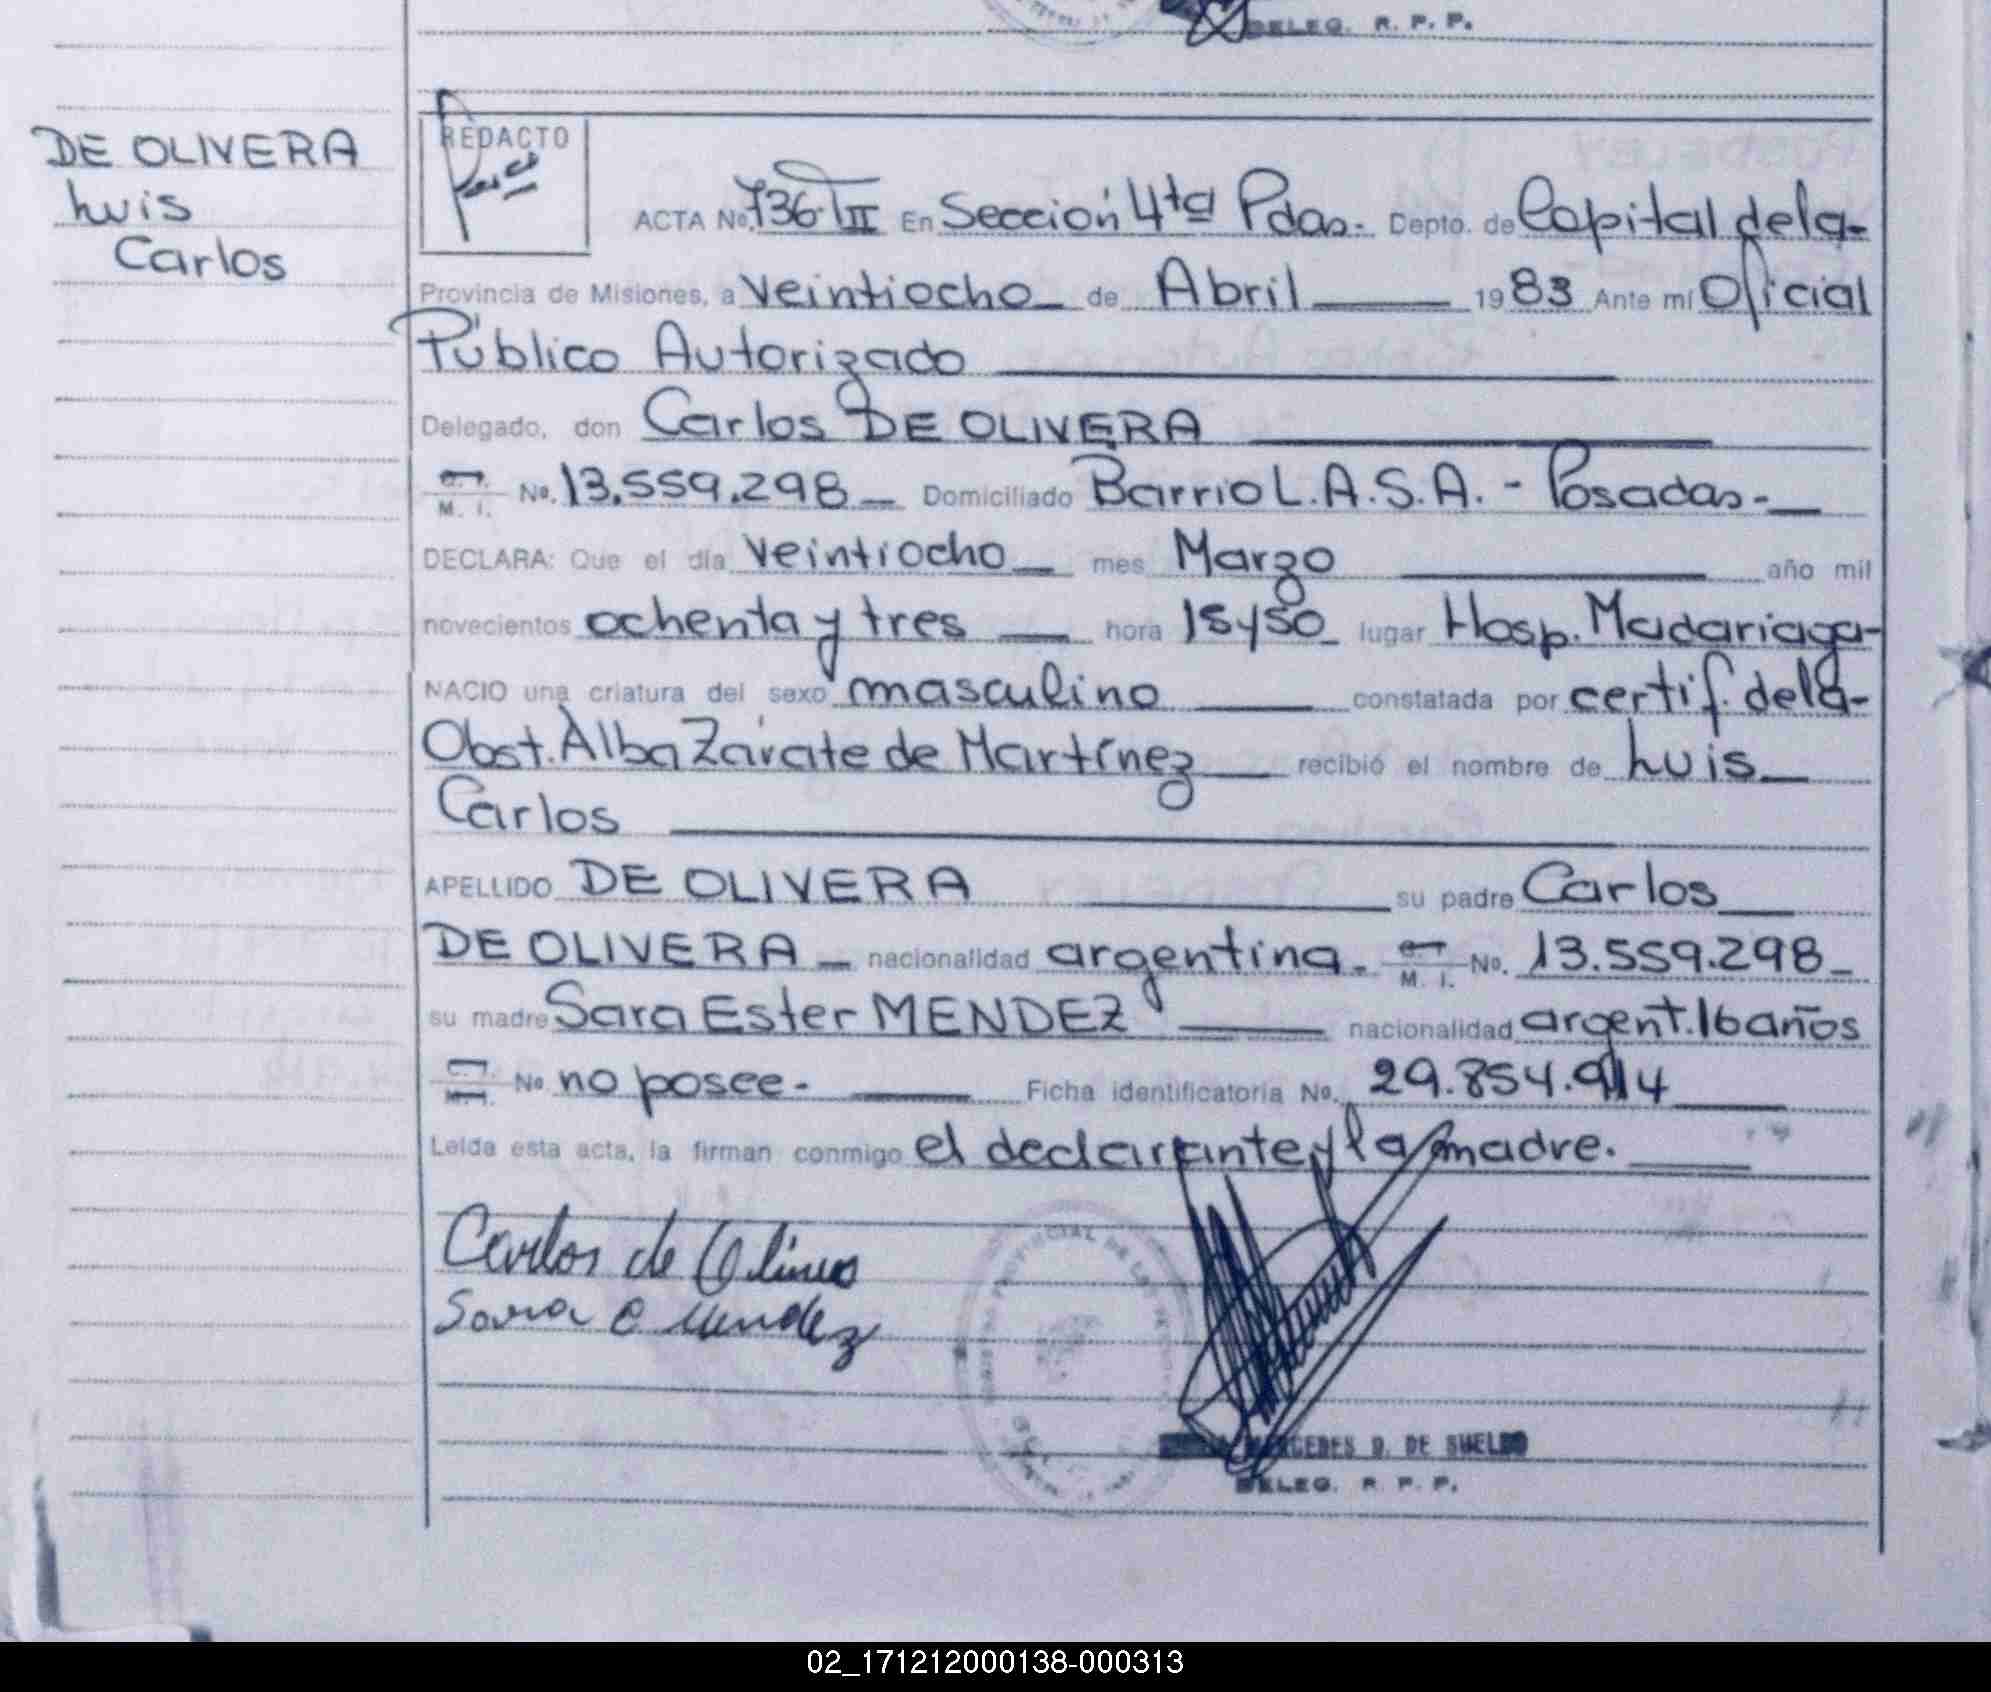 DELEG. R. P. P.
DE OLIVERA
Luis
Carlos
REDACTO
ACTA No. 736-TII En Sección 4ta Pdas.- Depto. de Capital de la-
Provincia de Misiones, a veintiocho de Abril 1983 Ante mí Oficial
Público Autorizado
Delegado, don Carlos DE OLIVERA
M. I. No. 13.559.298 Domiciliado Barrio L.A.S.A. - Posadas.-
DECLARA: Que el día veintiocho mes Marzo año mil
novecientos ochenta y tres hora 15y50 lugar Hosp. Madariaga-
NACIO una criatura del sexo masculino constatada por certif. de la-
Obst. Alba Zárate de Martínez recibió el nombre de Luis
Carlos
APELLIDO DE OLIVERA su padre Carlos
DE OLIVERA nacionalidad argentina. M. I. No. 13.559.298
su madre Sara Ester MENDEZ nacionalidad argent. 16 años
M. I. No no posee. Ficha identificatoria No. 29.854.914
Leída esta acta, la firman conmigo el declarante y la madre.
Carlos de Olivera
Sara E Mendez
MERCEDES D. DE SUELDO
DELEG. R. P. P.
02_171212000138-000313